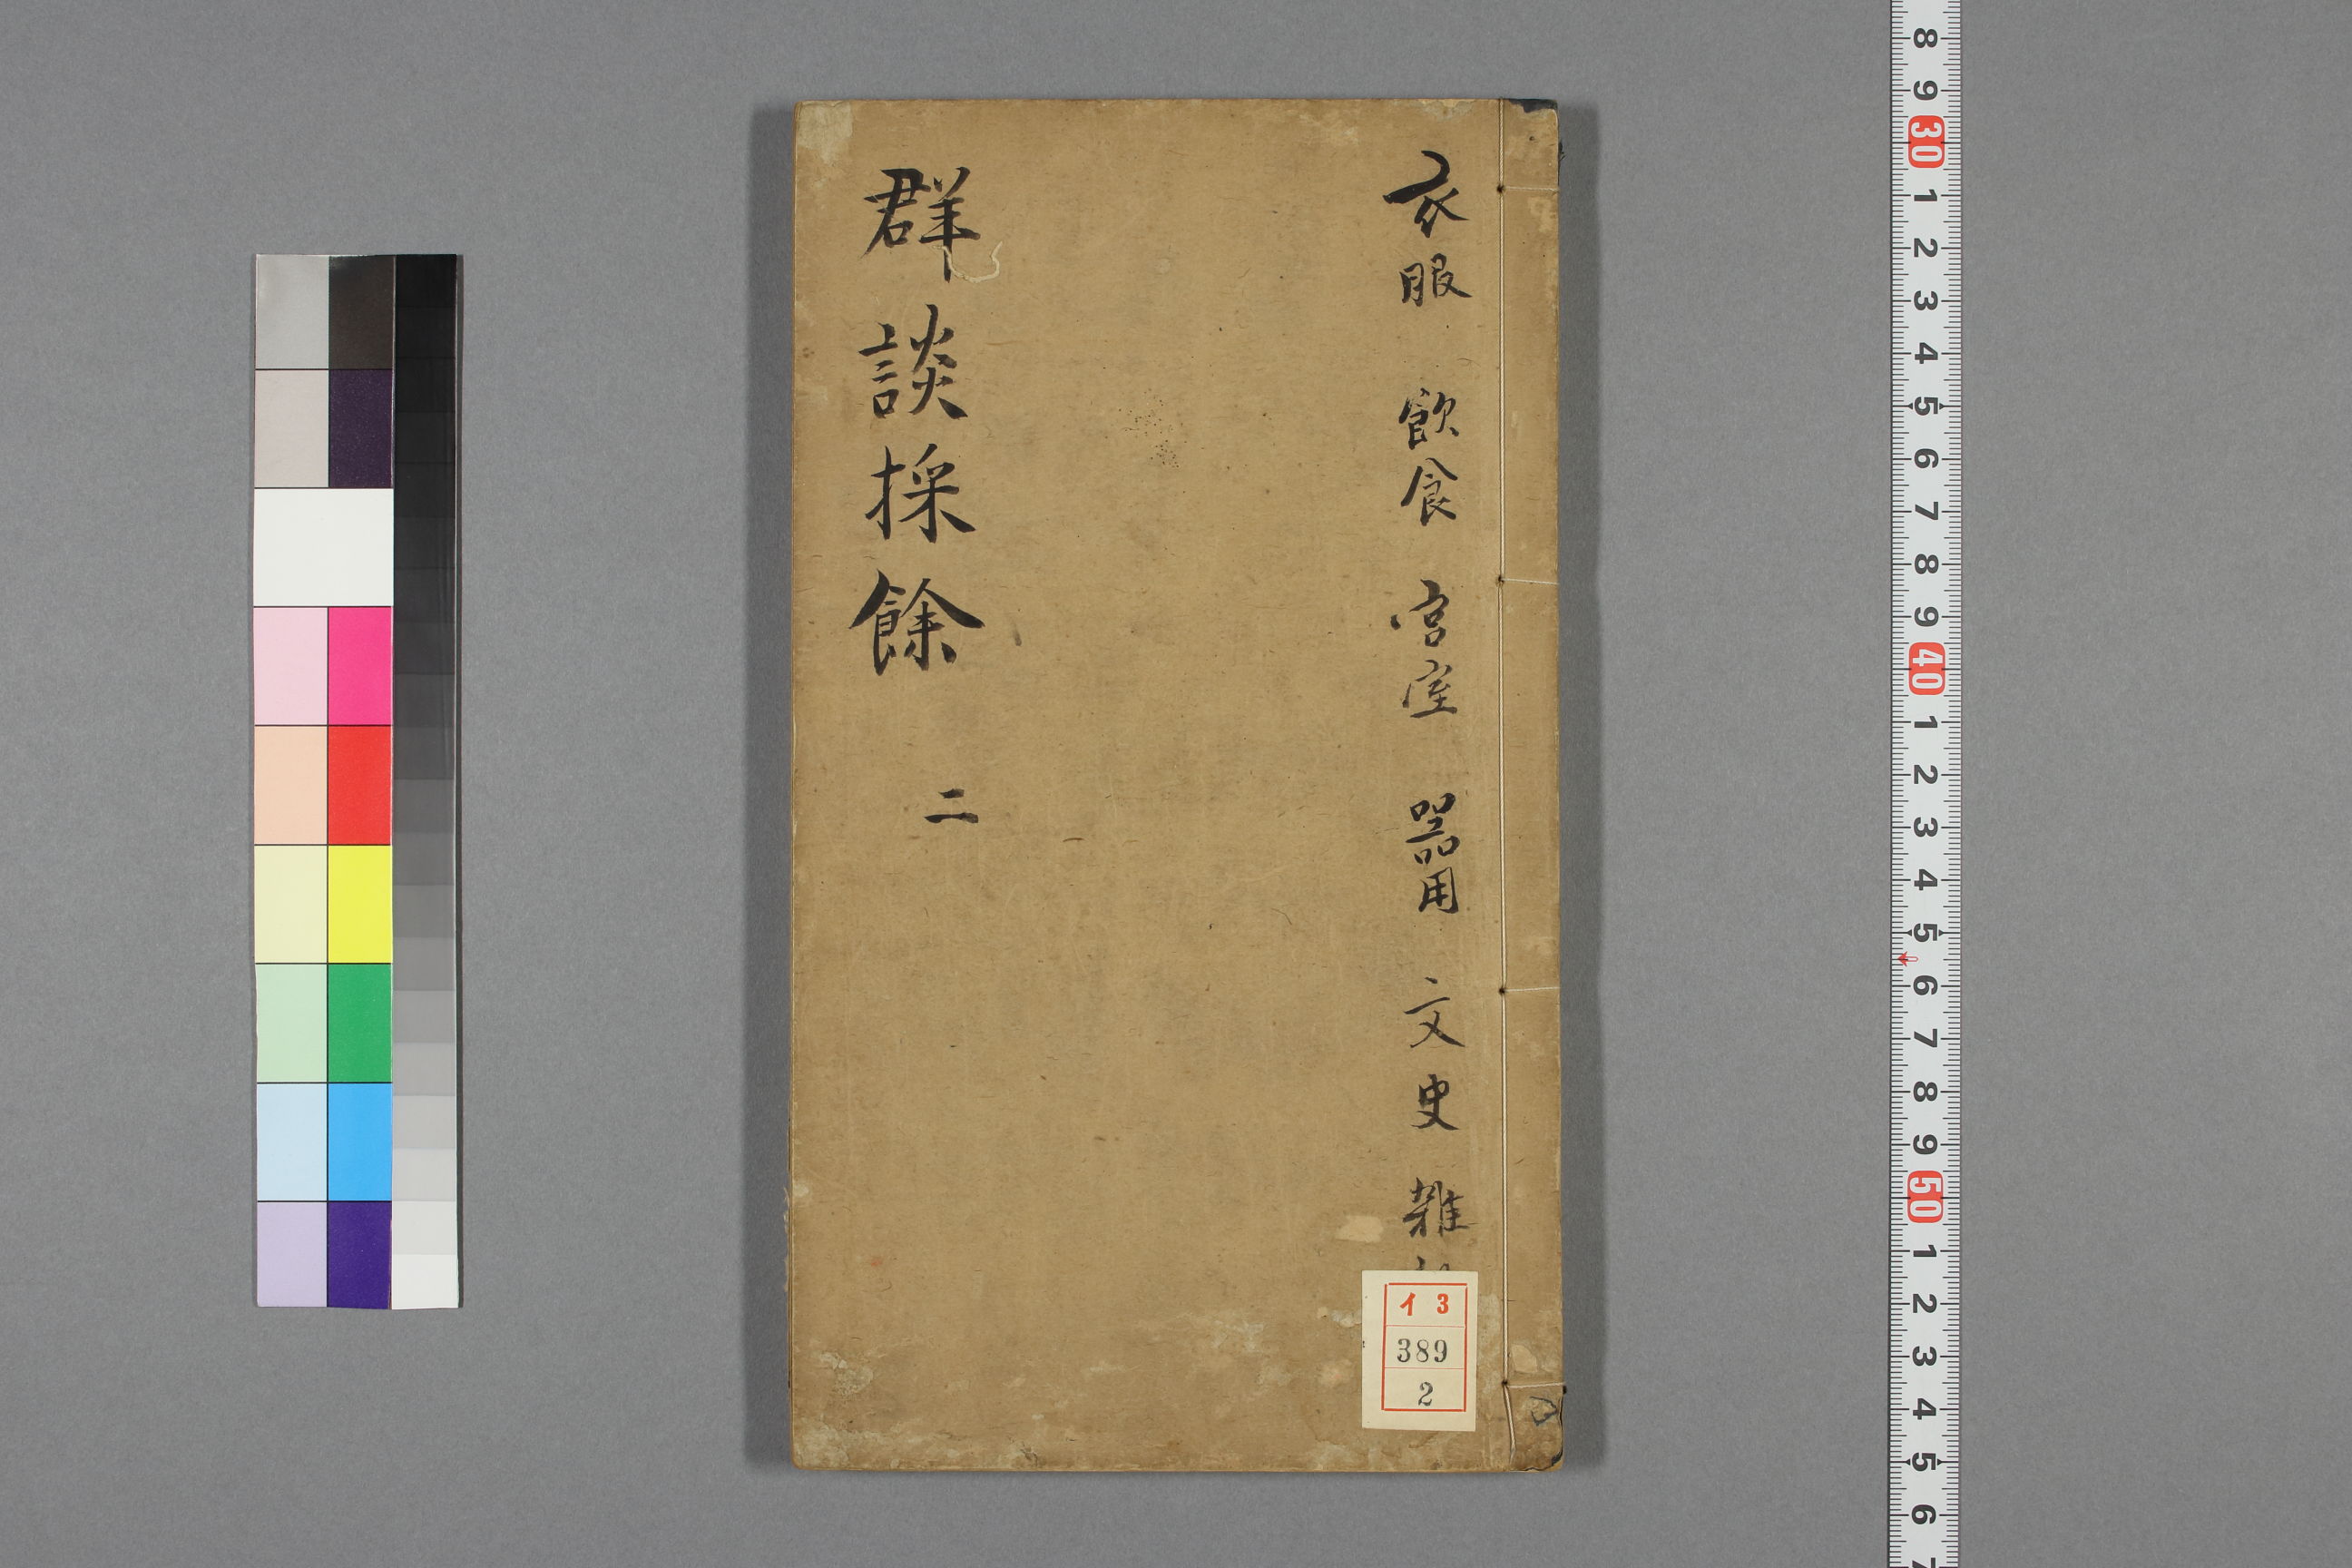 衣服 飲食 宮室 器用 文史 雜
群談採餘 二
イ 3
389
2
8
9
30
1
2
3
4
5
6
7
8
9
40
1
2
3
4
5
6
7
8
9
50
1
2
3
4
5
6